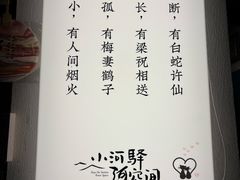 断，有白蛇许仙
长，有梁祝相送
孤，有梅妻鹤子
小，有人间烟火
小河驿
陌空间